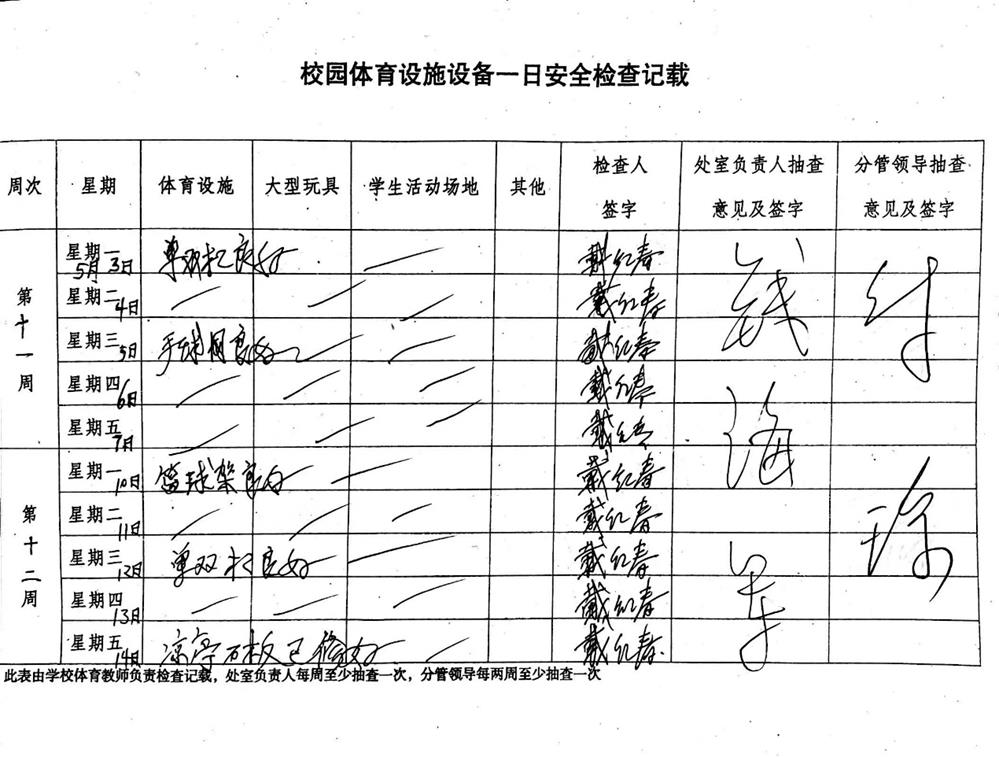 校园体育设施设备一日安全检查记载
周次 星期 体育设施 大型玩具 学生活动场地 其他 检查人签字 处室负责人抽查意见及签字 分管领导抽查意见及签字
第十一周 星期一 5月3日 单双杠良好 戴红春
星期二 4日 戴红春
星期三 5日 手球网良好 戴红春
星期四 6日 戴红春
星期五 7日 戴红春
第十二周 星期一 10日 篮球架良好 戴红春
星期二 11日 戴红春
星期三 12日 单双杠良好 戴红春
星期四 13日 戴红春
星期五 14日 凉亭石板已修好 戴红春
此表由学校体育教师负责检查记载，处室负责人每周至少抽查一次，分管领导每两周至少抽查一次